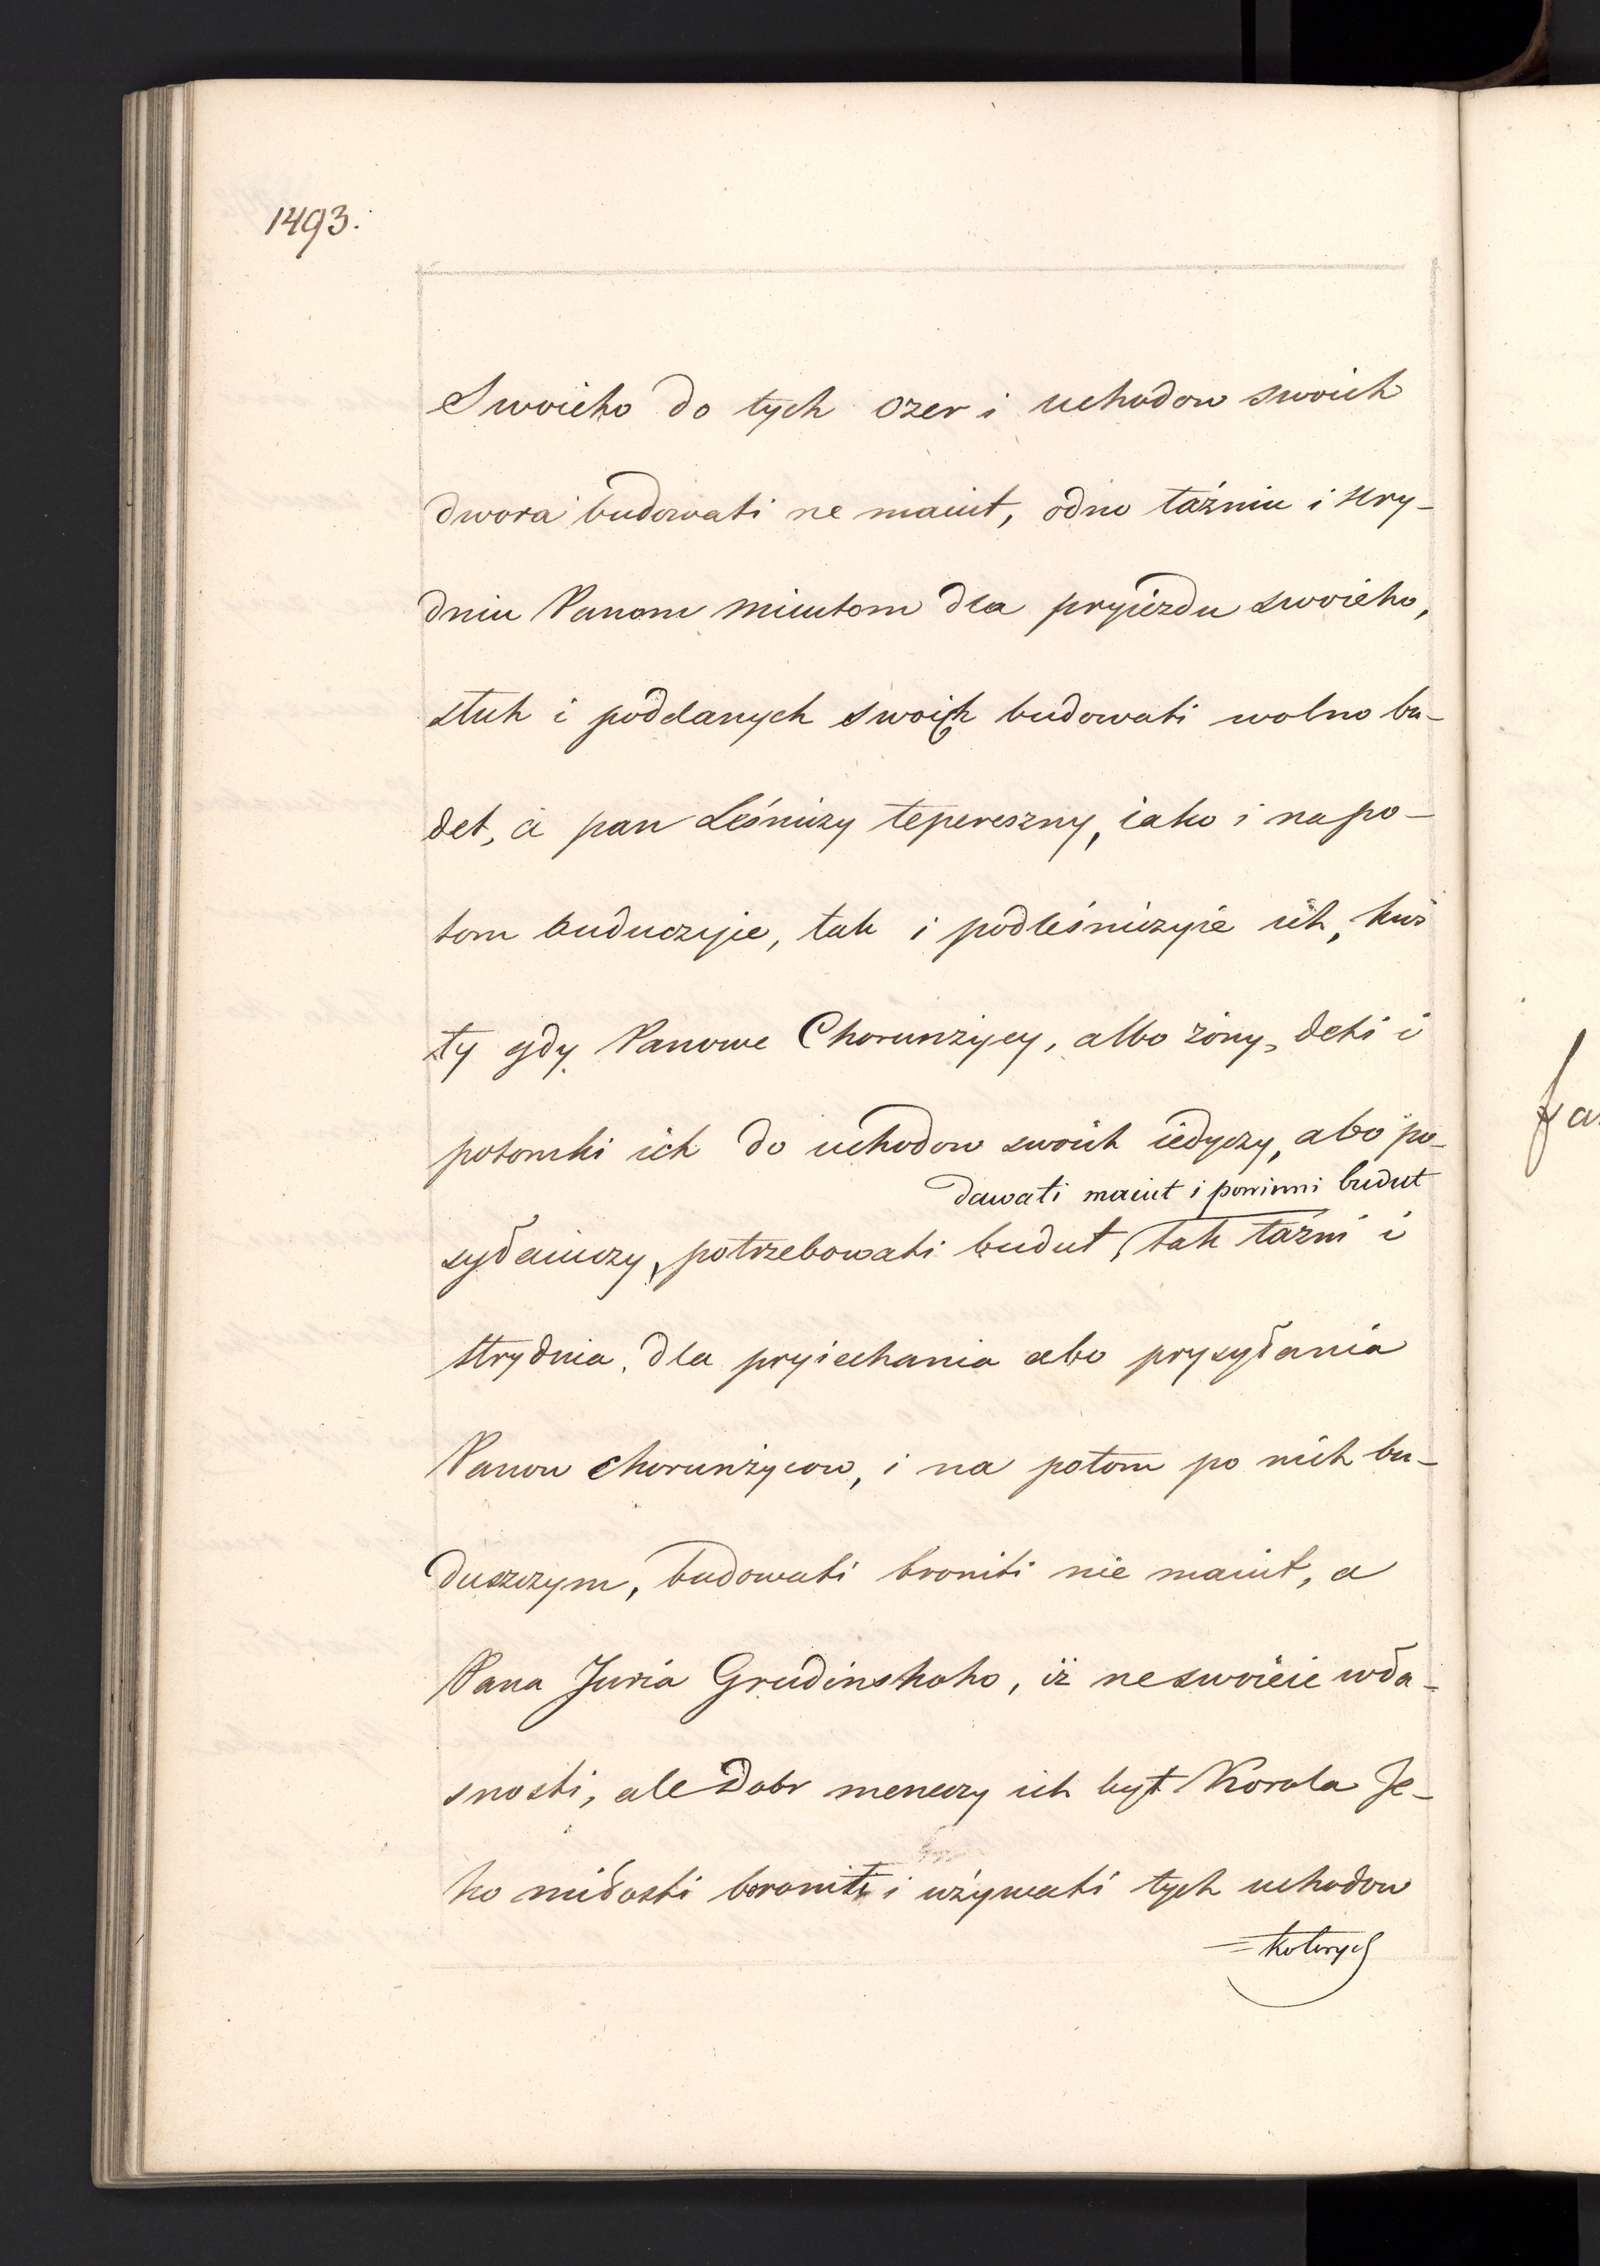 1493.
Swoieho do tych ozer i uchodow swoich
dwora budowati ne maiut, odno łaźniu i stry-
dniu Panom Mieutom dla pryiezdu swoieho,
słuh i poddanych swoich budowati wolno bu-
det, a pan Leśniczy tepereszny, iako i napo-
tom buduczyie, tak i podleśniczyie ich, kus
ty gdy Panowe Chorunżycy, albo żony, deti i
potomki ich do uchodow swoich iedyczy, abo po-
dawati maiut i powinni budut
syłaiuczy, potrzebowati budut, tak łaźni i
strydnia, dla pryiechania abo prysyłania
Panow Chorunżycow, i na potom po nich bu-
duszczym, budowati broniti nie maiut, a
Pana Juria Grudinskoho, iż ne swoieie wła-
snosti, ale Dobr meneczy ich byt Korola Je-
ho miłosti boroniti i używati tych uchodow
=kotorych
fa